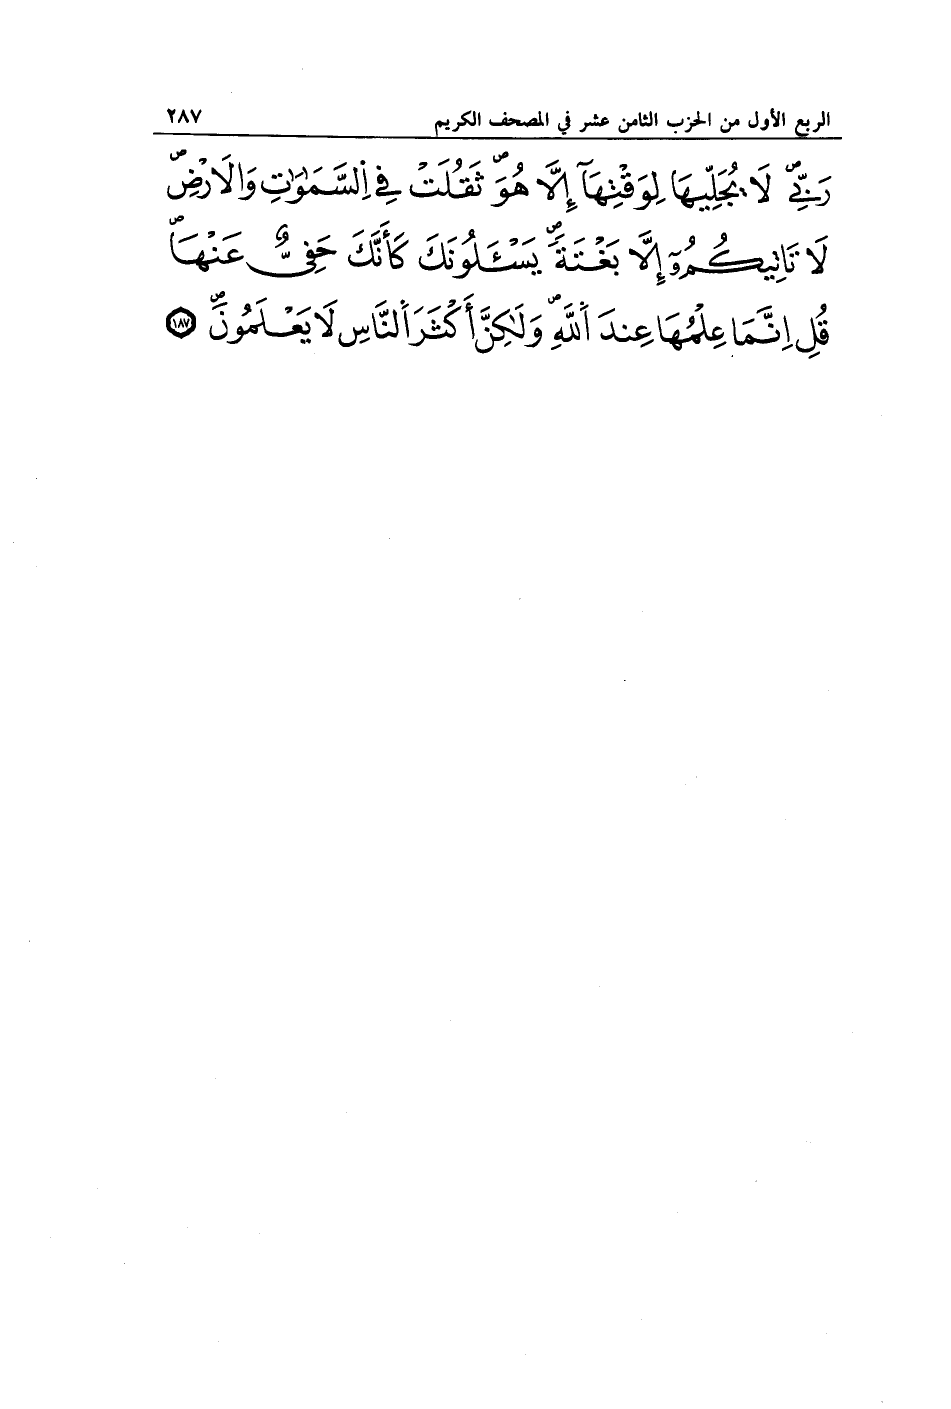 الربع الأول من الحزب الثامن عشر في المصحف الكريم ٢٨٧
رَبِّےۖ لَا يُجَلِّيهَا لِوَقْتِهَآ إِلَّا هُوَۖ ثَقُلَتْ فِے اِ۬لسَّمَٰوَٰتِ وَالَارْضِۖ
لَا تَاتِيكُمُۥٓ إِلَّا بَغْتَةٗۖ يَسْـَٔلُونَكَ كَأَنَّكَ حَفِيٌّ عَنْهَاۖ
قُلِ اِنَّمَا عِلْمُهَا عِندَ اَ۬للَّهِۖ وَلَٰكِنَّ أَكْثَرَ اَ۬لنَّاسِ لَا يَعْلَمُونَۖ ١٨٧